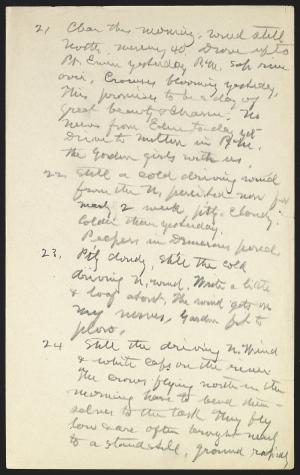 21 Clear this morning, wind still
North, mercury 40. Drove up to
Pt. Ewen yesterday P.M. Sap run
over, Crocuses blooming yesterday,
This promises to be a day of
great beauty & charm. No
news from Eden to-day yet
Drive to Milton in P.M.
the Gordon girls with us.
22 Still a cold driving wind
from the N, persisted now for
nearly 2 weeks, ptly cloudy;
colder than yesterday.
Peepers in Damerous pond.
23, Ptly cloudy, still the cold
driving N. wind. Write a little
& loaf about. The wind gets on
my nerves, Garden fit to
plow.
24 Still the driving N. Wind
& white caps on the river
The crows flying north in the
morning have to bend them-
selves to the task They fly
low & are often brought nearly
to a standstill, ground rapidly